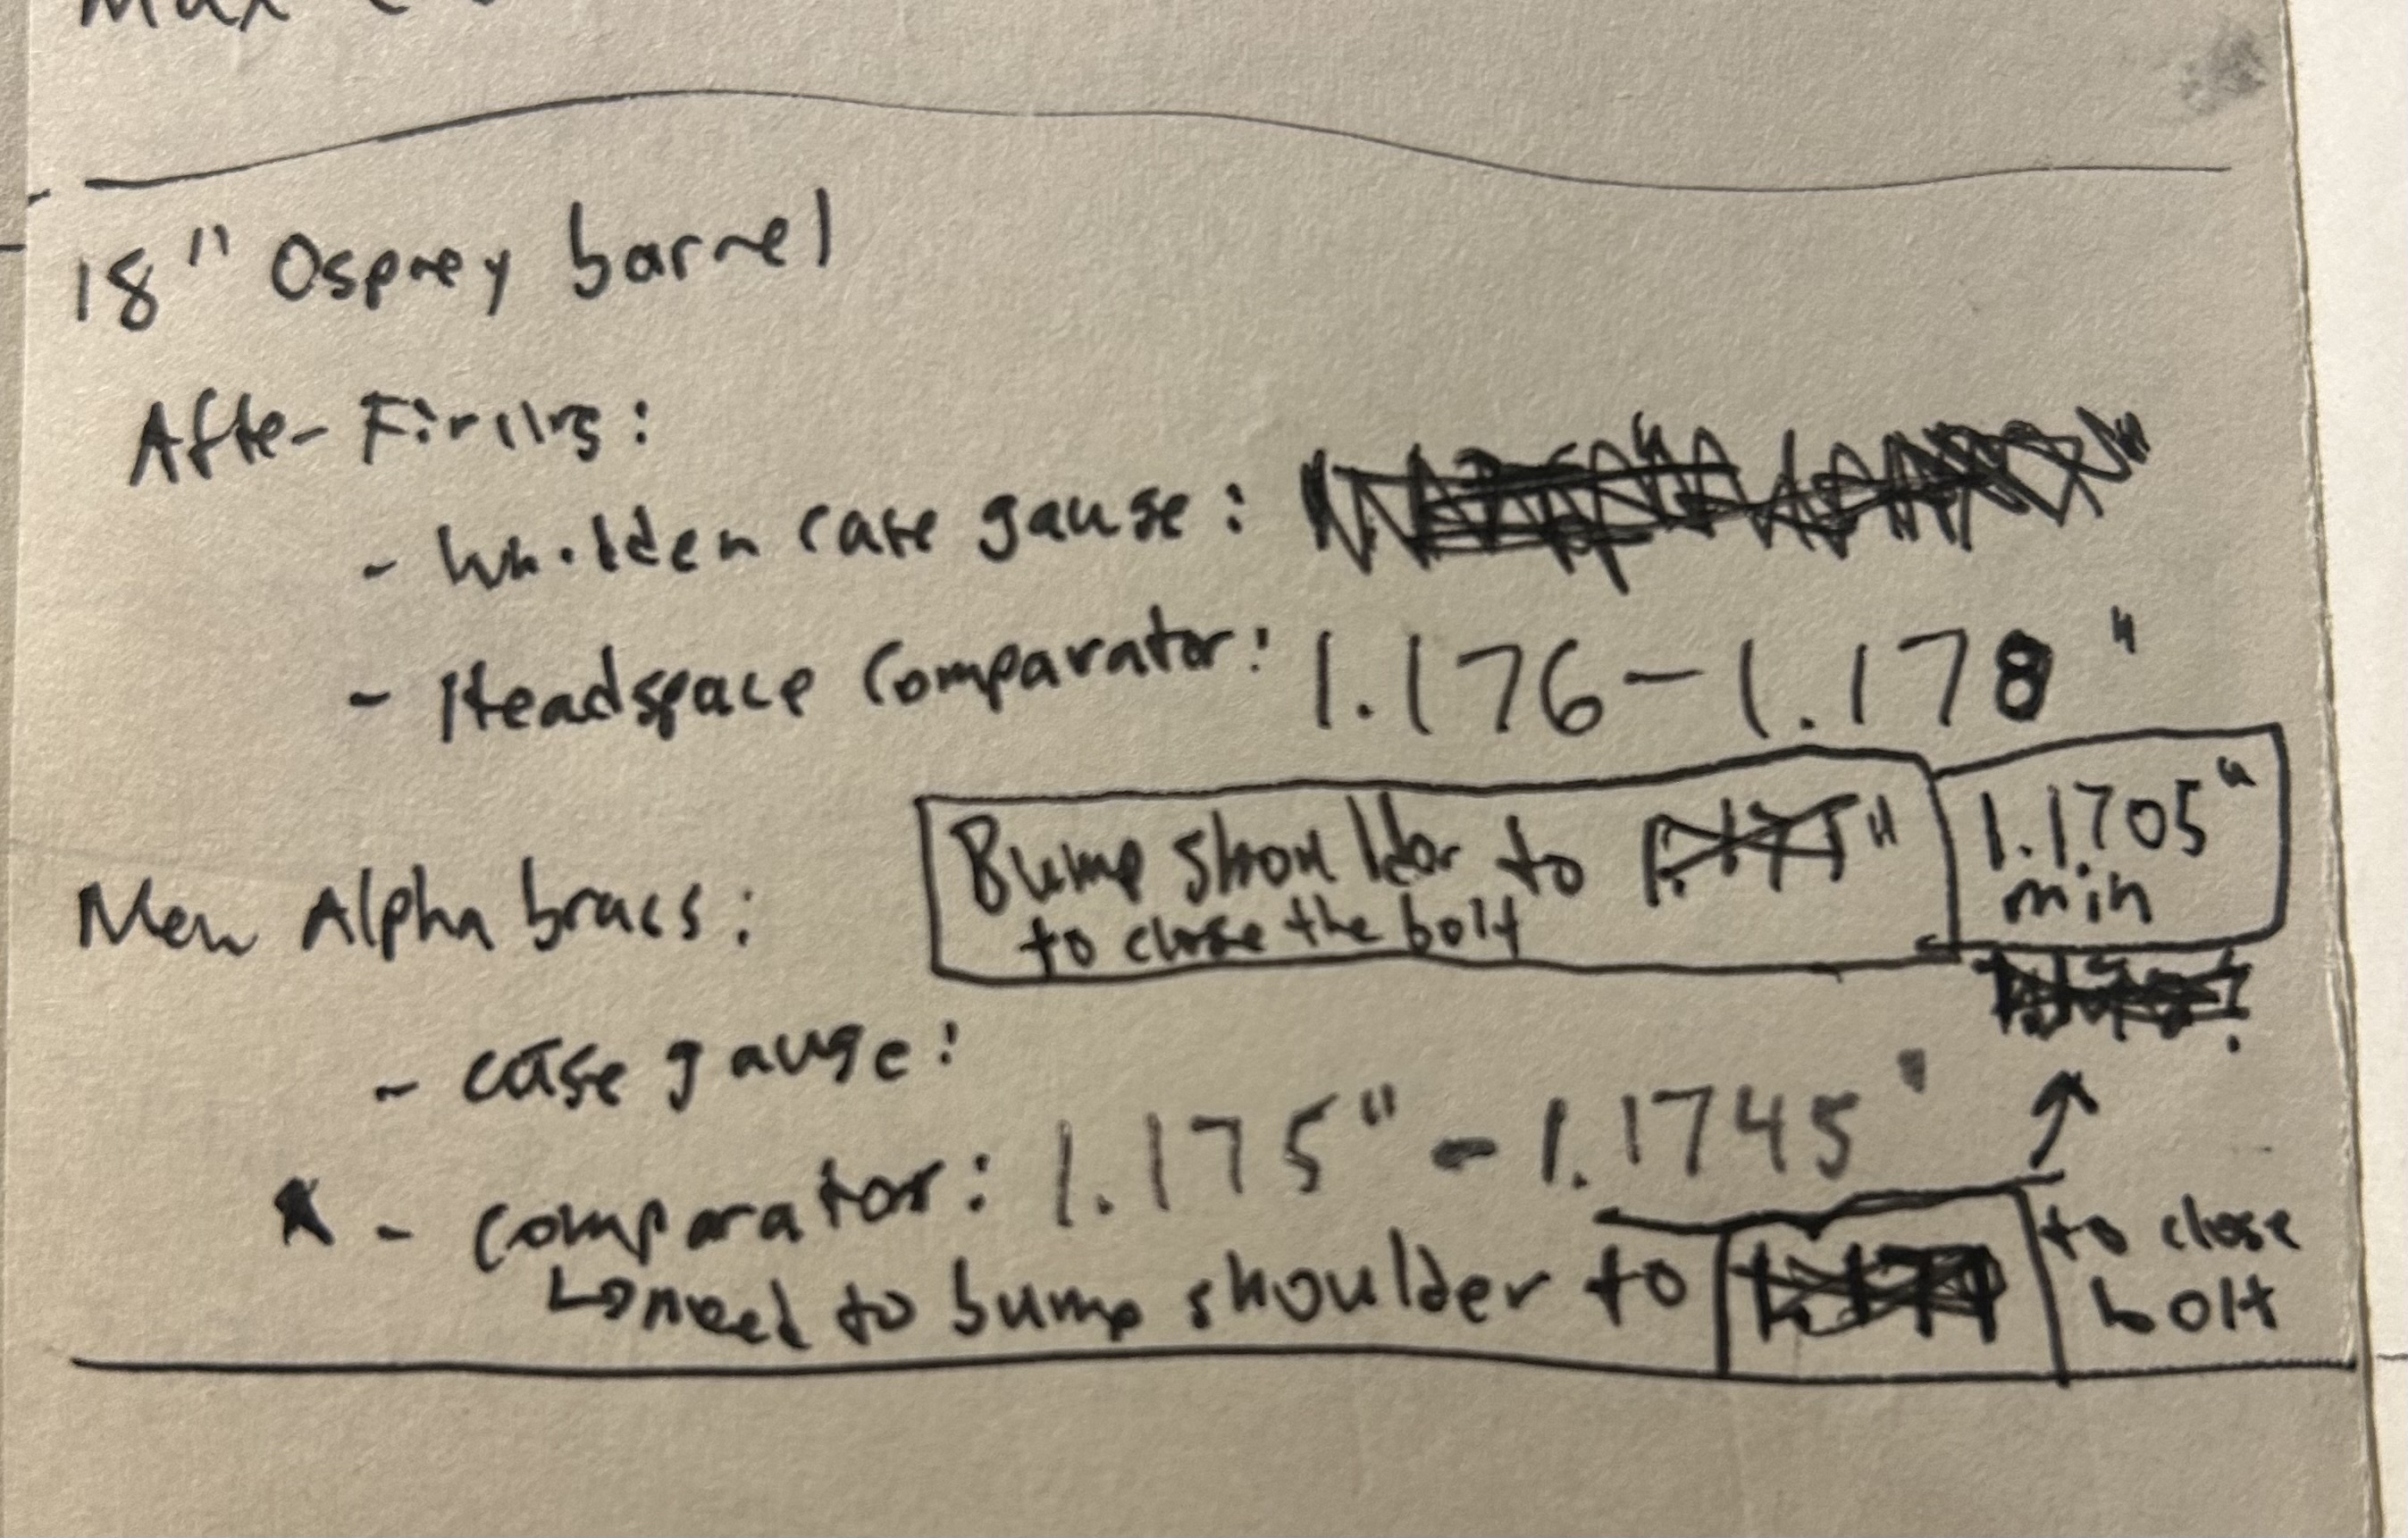 18" Osprey barrel
After Firing:
- Whilden case gauge:
- Headspace Comparator: 1.176 - 1.178"
New Alpha brass:
Bump shoulder to
to close the bolt
1.1705"
min
- case gauge:
- comparator: 1.175" - 1.1745"
need to bump shoulder to
to close
bolt